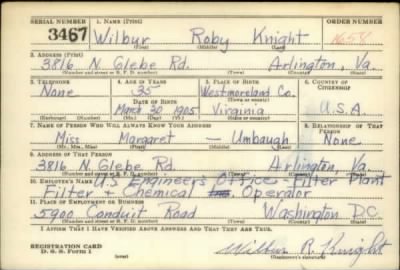 SERIAL NUMBER 1. NAME (Print) ORDER NUMBER
3467 Wilbur Roby Knight 1658
(First) (Middle) (Last)
2. ADDRESS (Print)
3816 N. Glebe Rd. Arlington, Va.
(Number and street or R. F. D. number) (Town) (County) (State)
3. TELEPHONE 4. AGE IN YEARS 5. PLACE OF BIRTH 6. COUNTRY OF CITIZENSHIP
None 35 Westmoreland Co.
DATE OF BIRTH (Town or county)
March 30 1905 Virginia U.S.A.
(Exchange) (Number) (Mo.) (Day) (Yr.) (State or country)
7. NAME OF PERSON WHO WILL ALWAYS KNOW YOUR ADDRESS 8. RELATIONSHIP OF THAT PERSON
Miss Margaret — Umbaugh None
(Mr., Mrs., Miss) (First) (Middle) (Last)
9. ADDRESS OF THAT PERSON
3816 N. Glebe Rd. Arlington, Va.
(Number and street or R. F. D. number) (Town) (County) (State)
10. EMPLOYER'S NAME U.S Engineers Office - Filter Plant
Filter & Chemical Operator
11. PLACE OF EMPLOYMENT OR BUSINESS
5900 Conduit Road Washington D.C.
(Number and street or R. F. D. number) (Town) (County) (State)
I AFFIRM THAT I HAVE VERIFIED ABOVE ANSWERS AND THAT THEY ARE TRUE.
REGISTRATION CARD
D. S. S. Form 1 Wilbur R Knight
(Registrant's signature)